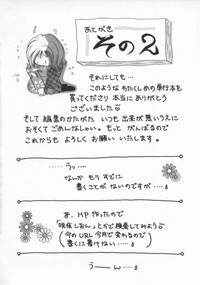 あとがき
その2
それにしても…
このような ちたくしあの単行本を
買ってくださり 本当にありがとう
ございました
そして 編集のかたがた いつも 出来が思いうえに
おそくて ごめんなしゃい。もっと がんばるので
これからも よろしく お願い いたします。
うっ…
なんか もう すでに
書くことが ないのですが…
あ、HP 作ったので
とかで 検索してみよう
(今の URL 今月で 変わるので)
書くに書けない……
うーん…